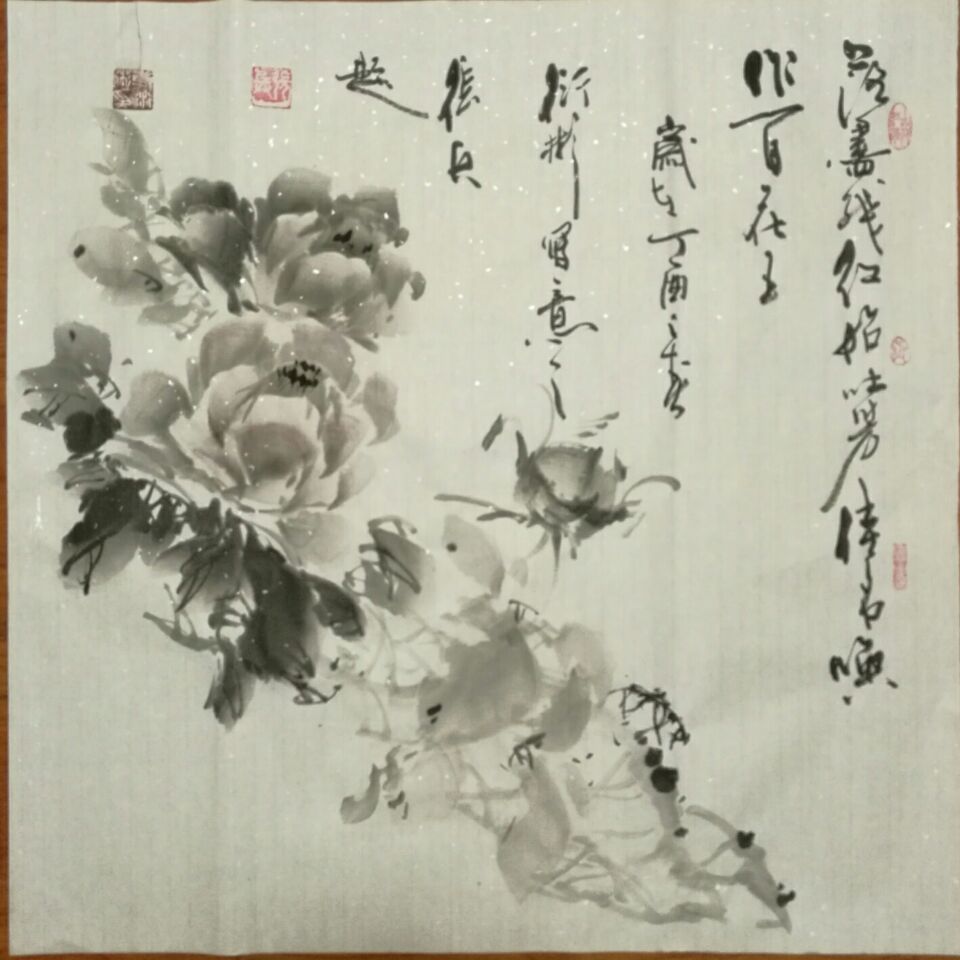 落尽残红始吐芳佳名唤
作百花王
岁在丁酉之春
衍彬写意之
张兵
题